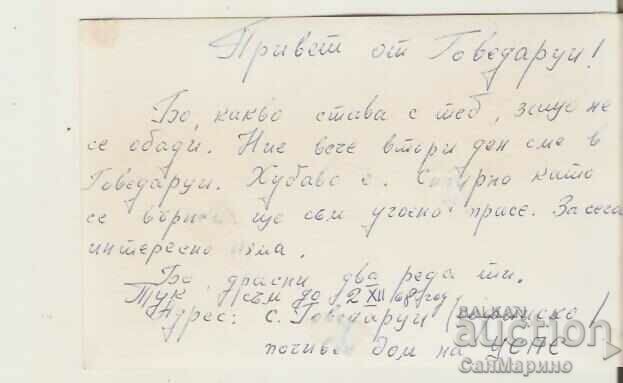 Привет от Говедарци!
Бо, какво става с теб, защо не
се обади. Ние вече втори ден сме в
Говедарци. Хубаво е. Сигурно като
се върна ще съм угоено прасе. За сега
интересно няма.
Бо, драсни два реда ми.
Тук съм до 2 XII 68 год
Адрес: с. Говедарци /
почивен дом на
BALKAN
auction
СанМарино